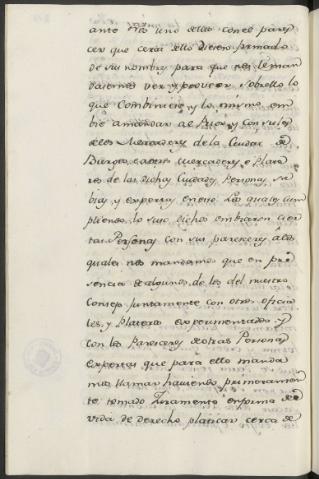 ante Nos uno dellos con el parez
cer que cerca dello dieren firmado
de su nombre para que nos le man
dasemos ver y proveer sobrello lo
que combiniese y lo mismo em
bió a mandar al Prior y Consules
de los Mercaderes de la Ciudad de
Burgos, e otros Mercaderes e Plate
ros de las dichas Ciudades, Personas sa
bias y expertas en ello. Los quales cum
pliendo lo suso dicho embiaron cier
tas Personas con sus pareceres a los
quales nos mandamos que en pre
sencia de algunos de los del nuestro
Consejo juntamente con otros oficia
les, y Plateros experimentados y
con los Pareceres de otras Personas
expertas que para ello manda
mos llamar haviendo primeramen
te tomado Juramento en forma de
vida de derecho platicar cerca de